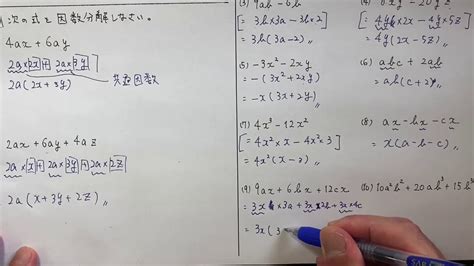 次の式を因数分解しなさい。
4ax + 6ay
2a×2x + 2a×3y
共通因数
2a(2x+3y)
2ax + 6ay + 4az
2a×x + 2a×3y + 2a×2z
2a(x+3y+2z)
(3) 9ab - 6b
[= 3b×3a - 3b×2]
= 3b(3a-2)
[= 4y×2x - 4y×5z]
= 4y(2x-5z)
(5) -3x² - 2xy
= -(3x²+2xy)
= -x(3x+2y)
(6) abc + 2ab
= ab(c+2)
(7) 4x³ - 12x²
[= 4x²×x - 4x²×3]
= 4x²(x-3)
(8) ax - bx - cx
= x(a-b-c)
(9) 9ax + 6bx + 12cx
= 3x×3a + 3x×2b + 3x×4c
= 3x(3
(10) 10a²b² + 20ab³ + 15b